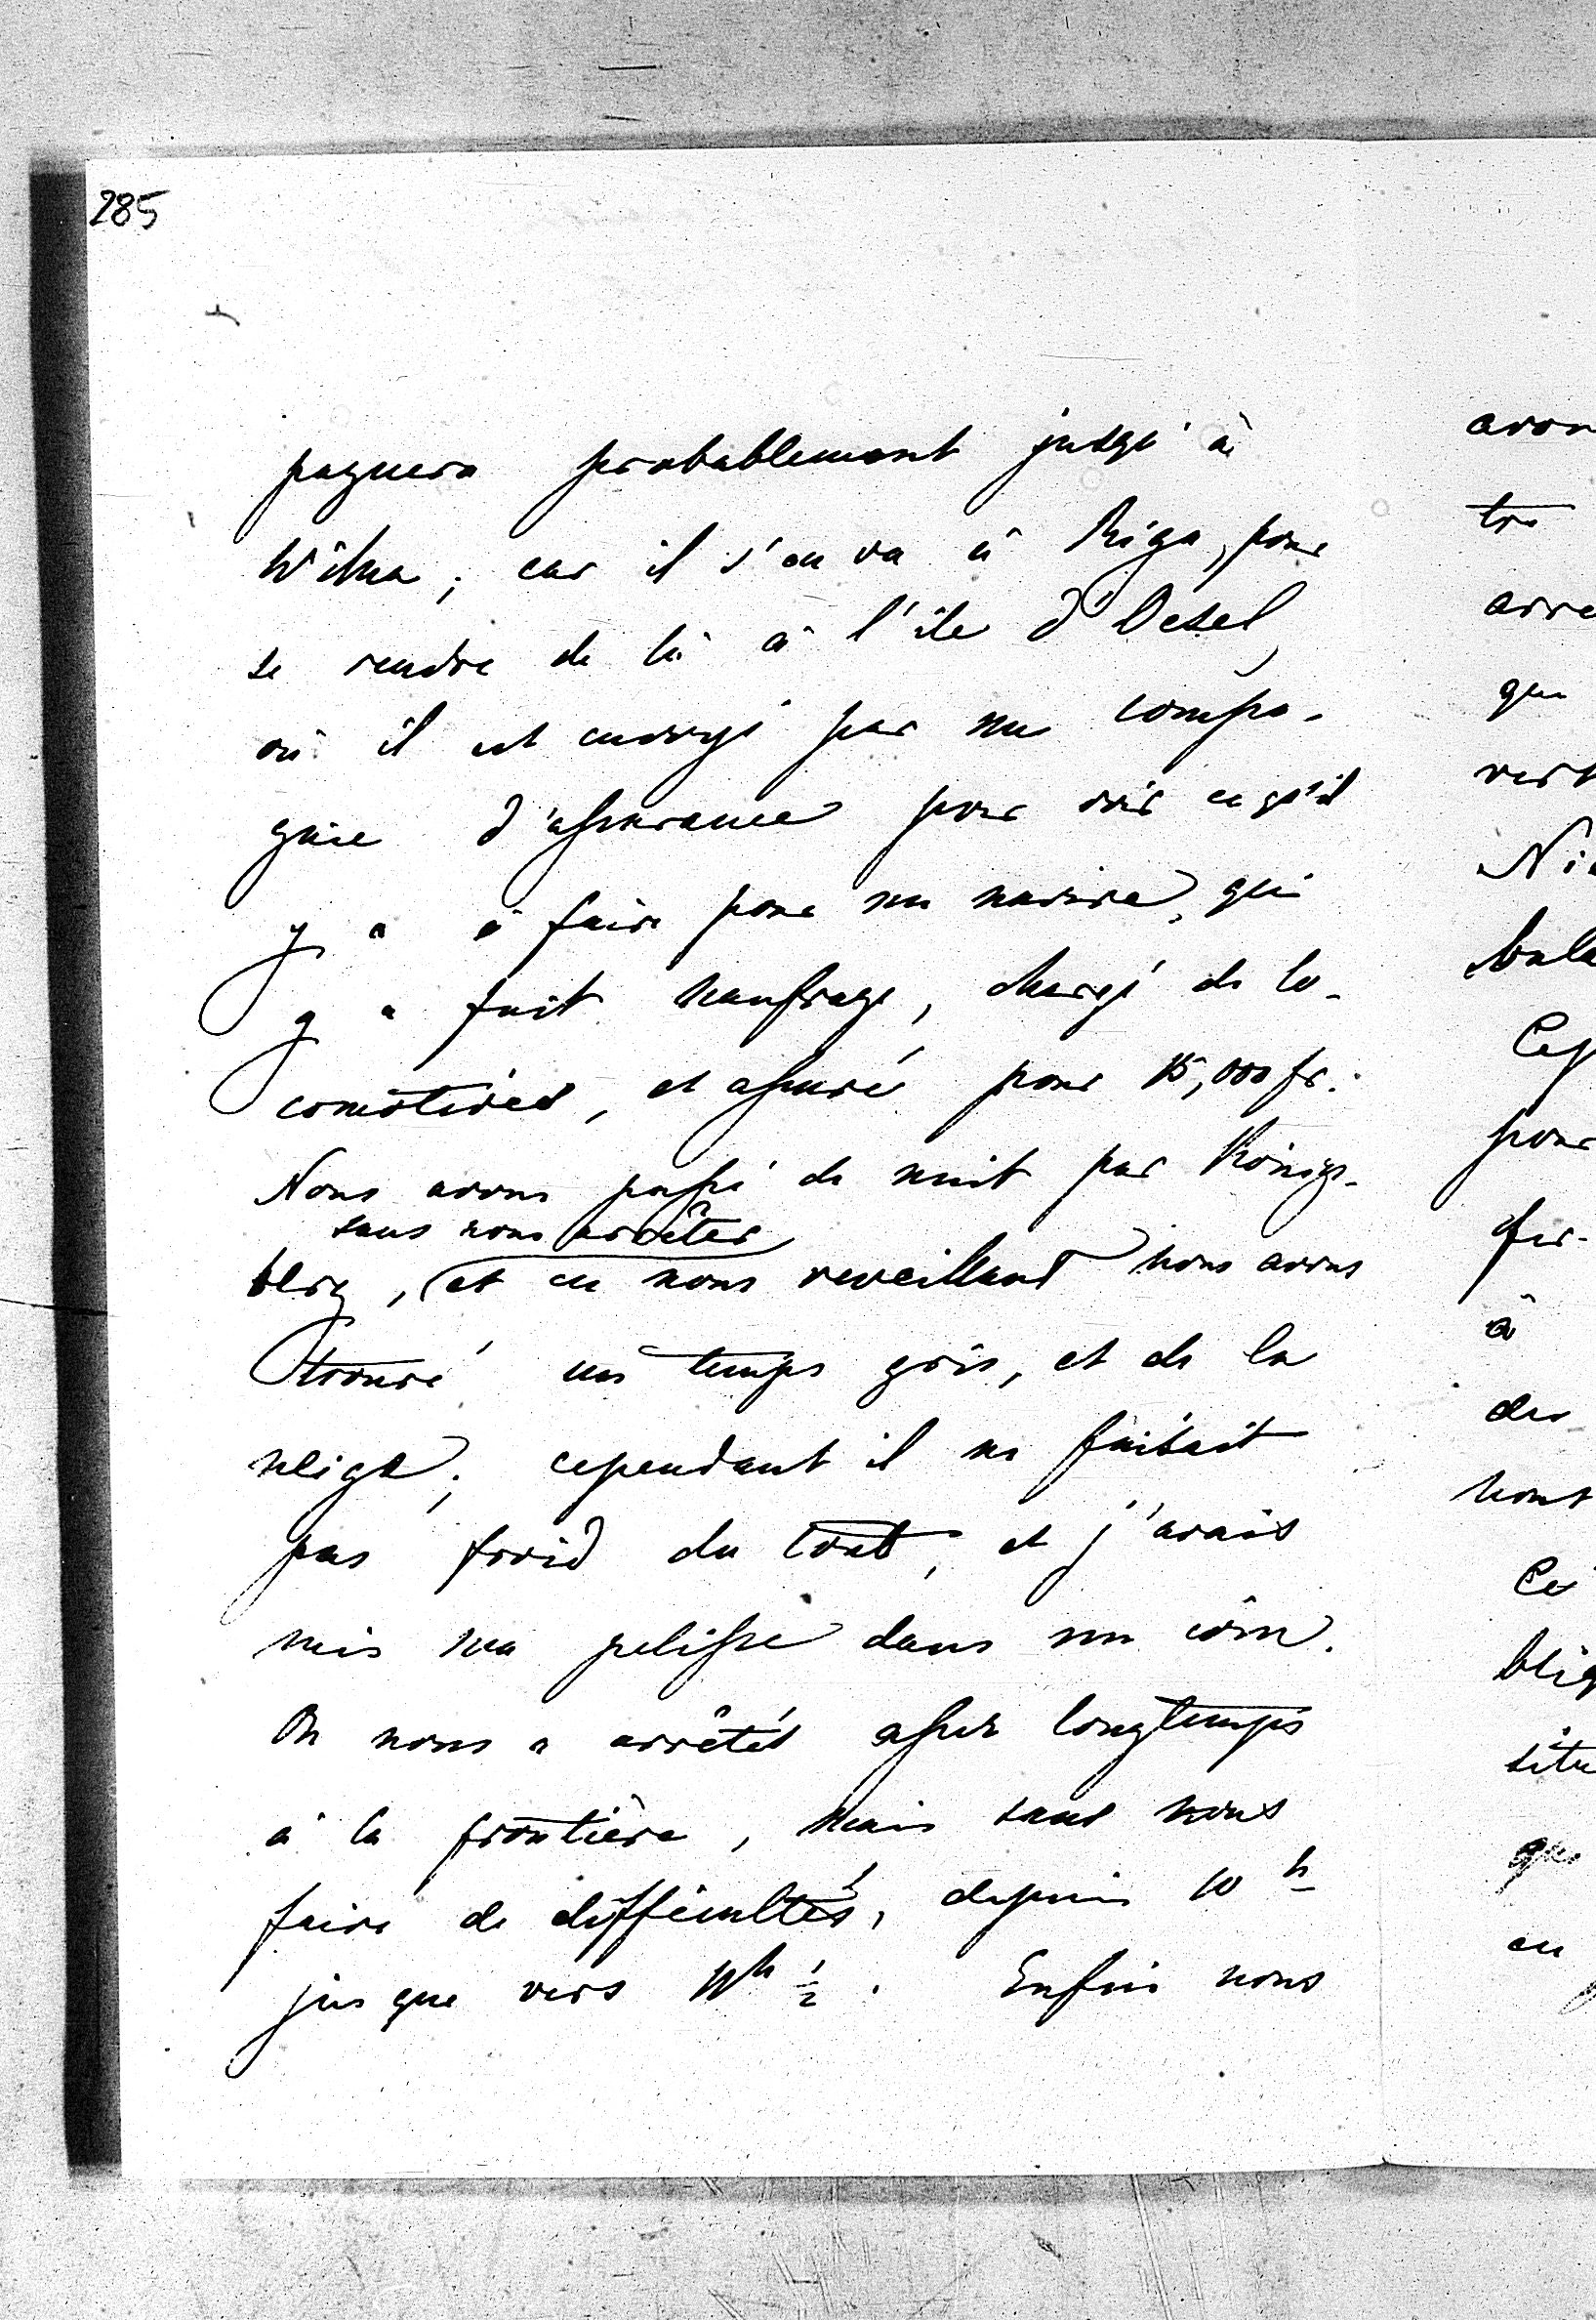 285
pagnera probablement jusqu'à
Wilna; car il s'en va à Riga, pour
se rendre de là à l'île d'Oesel,
où il est envoyé par une compa-
gnie d'assurance pour voir ce qu'il
y a à faire pour un navire, qui
y a fait naufrage, chargé de lo-
comotives, et assuré pour 15,000 fr.
Nous avons passé de nuit par Königs-
sans nous arrêter
berg, et en nous reveillant nous avons
trouvé un temps gris, et de la
neige; cependant il ne faisait
pas froid du tout, et j'avais
mis ma pelisse dans un coin.
On nous a arrêtés assez longtemps
à la frontière, mais sans nous
faire de difficultés, depuis 10 h
jusque vers h ½. Enfin nous
avon
tre
arre
que
vert
Ni
bula
Cep
pour
fer-
à
des
nous
Ce
blig
situ
que
en